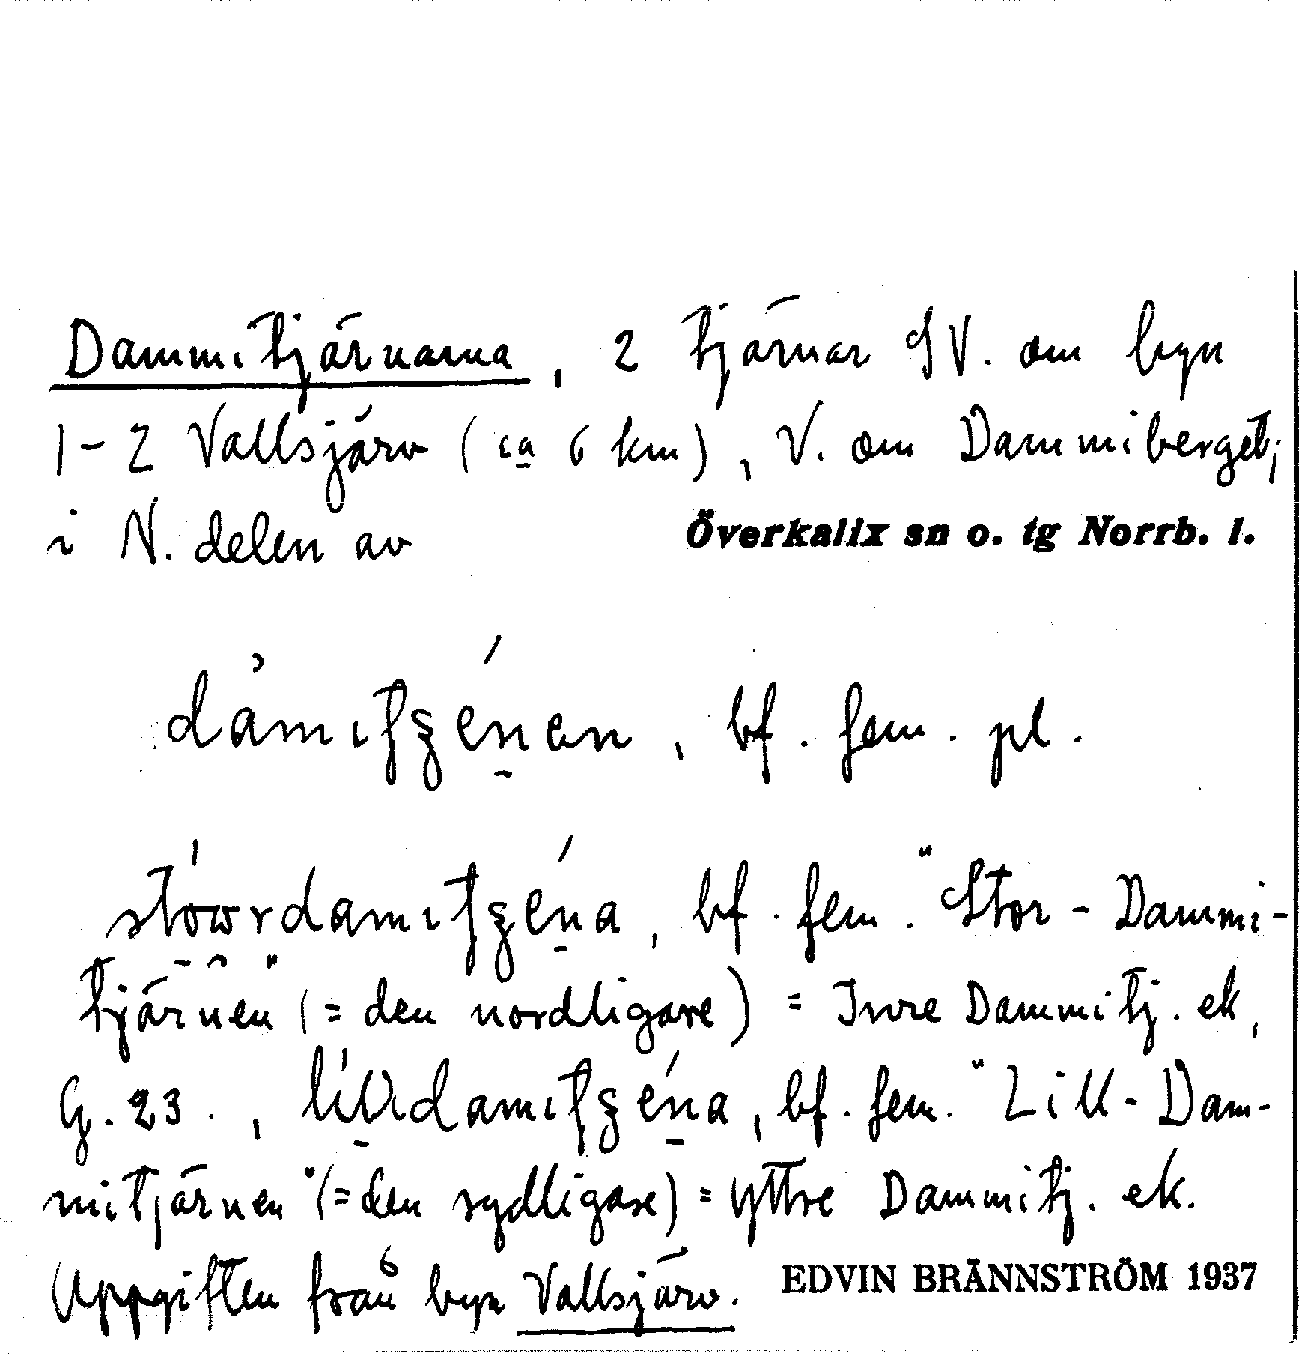 Dammitjärnarna, 2 tjärnar SV. om byn
1-2 Vallsjärv (ca 6 km), V. om Dammiberget;
i N. delen av Överkalix sn o. tg Norrb. l.
bf. fem. pl.
bf. fem. "Stor-Dammi-
tjärnen" (= den nordligare) = Inre Dammitj. ek,
G. 23., bf. fem. "Lill-Dam-
mitjärnen" (= den sydligare) = Yttre Dammitj. ek.
Uppgiften från byn Vallsjärv. EDVIN BRÄNNSTRÖM 1937